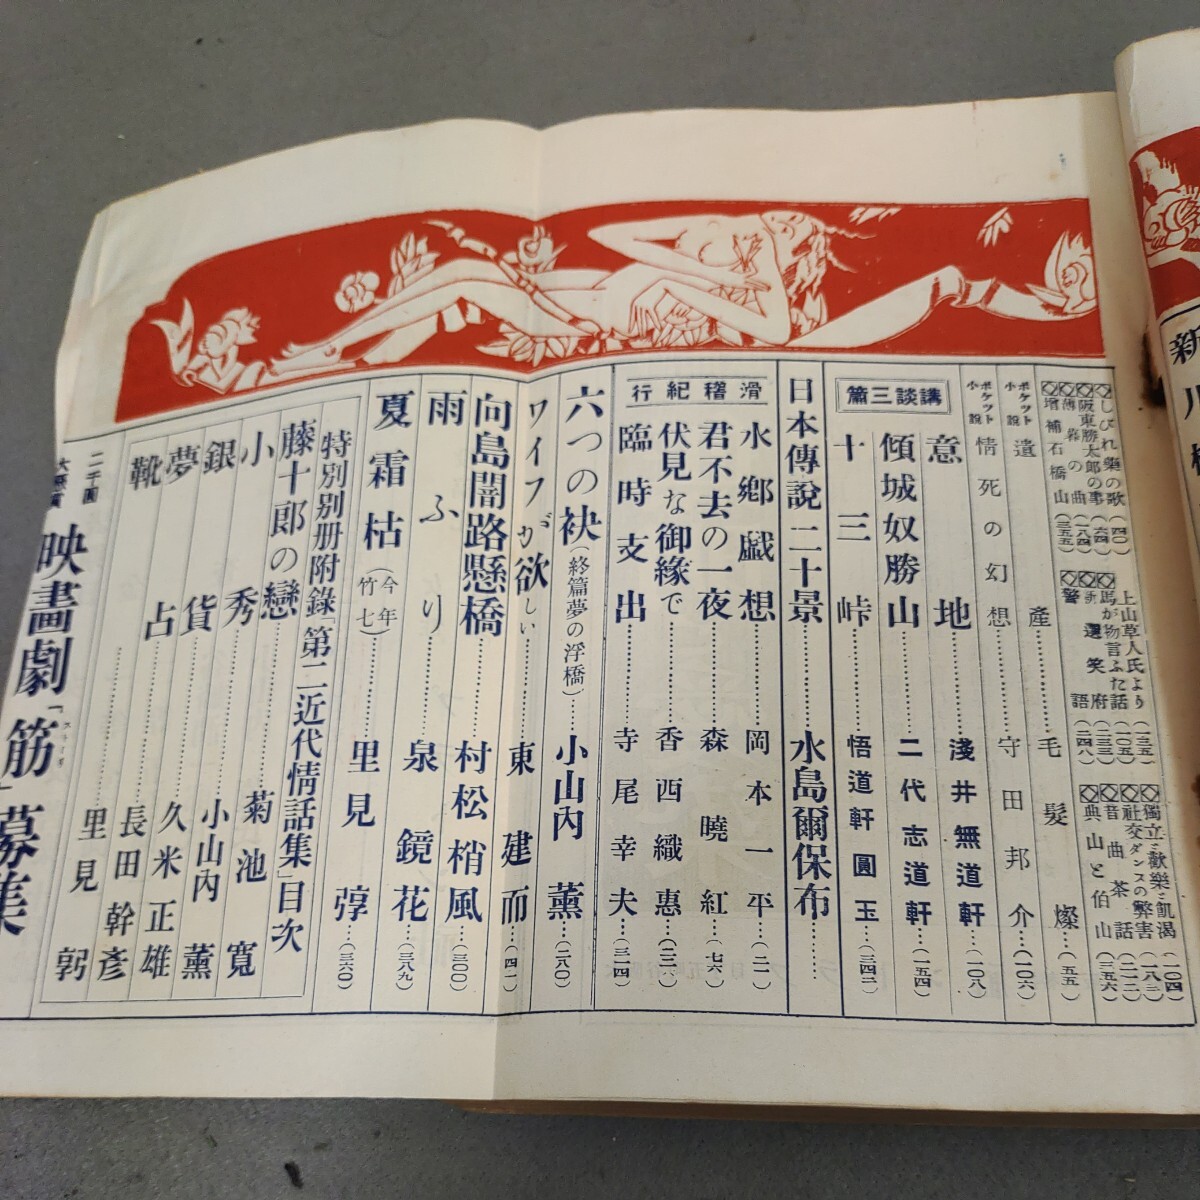 新
◇しびれ藥の歌(四〇)
◇阪東勝太郎の事(六四)
◇薄暮の曲(一八四)
◇增補石橋山(三五五)
◇上山草人氏より(一三五)
◇馬が物言ふた話(一〇五)
選笑府(二三三)
◇警語(二四八)
◇獨立と歡樂と凱渴(一〇四)
◇社交ダンスの弊害(一八三)
◇音曲茶話(二一二)
◇典山と伯山(三五六)
ポケット小說 遺產……毛髮燦…(五五)
ポケット小說 情死の幻想……守田邦介…(一〇六)
講談三篇
意地……淺井無道軒…(一〇八)
傾城奴勝山……二代志道軒…(一五四)
十三峠……悟道軒圓玉…(三四二)
日本傳說二十景……水島爾保布……
滑稽紀行
水鄉戲想……岡本一平…(二一)
君不去の一夜……森曉紅…(七六)
伏見な御緣で……香西織惠…(一三二)
臨時支出……寺尾幸夫…(三一四)
六つの袂(終篇夢の浮橋)……小山內薰…(二八〇)
ワイフが欲しい……東建而…(四一)
向島闇路懸橋……村松梢風…(三〇〇)
雨ふり……泉鏡花…(三八九)
夏霜枯(今年竹七)……里見弴…(三六〇)
特別別册附錄「第二近代情話集」目次
藤十郎の戀……菊池寬
小秀……小山內薰
銀貨……久米正雄
夢占……長田幹彥
靴……里見弴
二千圓大懸賞 映畫劇「筋」募集
ストーリー